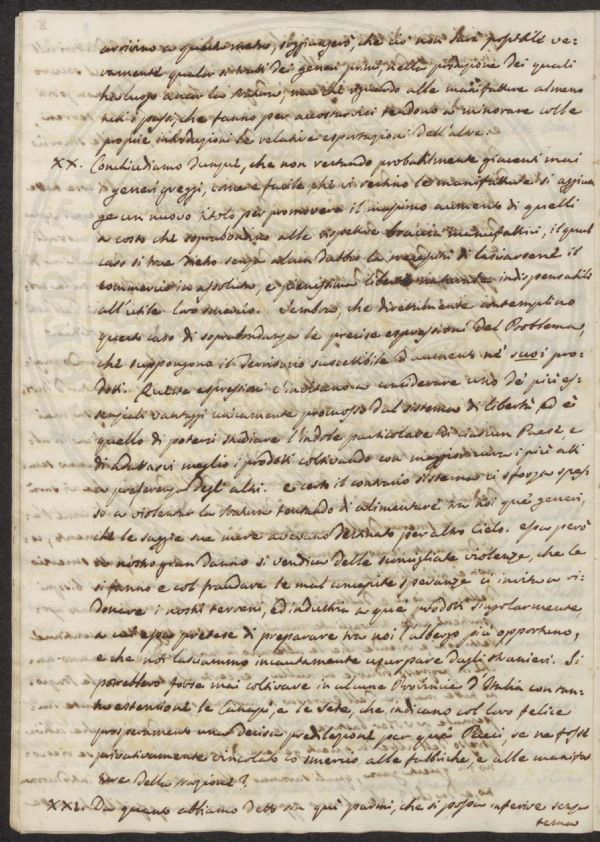 a questo metro, soggiungerò, che ciò non sarà possibile ve-
ramente qualor si tratti dei generi primi, nella produzione dei quali
ha luogo ancor la Natura, ma che riguardo alle manifatture almeno
tutti i passi, che fanno per accostarvici tendono a minorare colle
proprie introduzioni le relative esportazioni dell'altre.
XX. Conchiudiamo dunque, che non restando probabilmente giacenti mai
i generi greggi, come è facile che vi restino le manifatture si aggiun
ge un nuovo titolo per promovere il massimo aumento di quelli
a costo che soprabondino alle rispettive braccia manufattrici, il qual
caso si trae dietro senza alcun dubbio la necessità di lasciarsene il
commercio in assoluta, e pienissima libertà naturale indispensabile
all'utile loro smercio. Sembra, che direttamente contemplino
questo caso di soprabondanza le precise espressioni del Problema,
che suppongono il Territorio suscettibile d'aumento ne' suoi pro-
dotti. Queste espressioni c'invitano a considerare uno de' più es-
senziali vantaggi unicamente promosso dal sistema di libertà, ed è
quello di potersi studiare l'indole particolare di ciascun Paese, e
di adattarvi meglio i prodotti coltivando con maggior cura i più atti
a preferenza degl'altri. e certo il contrario sistema ci sforza spes-
so a violentar la Natura tentando di alimentare tra noi que' generi,
che le saggie sue mire avevano destinato per altro Cielo. essa però
a nostro gran danno si vendica delle sconsigliate violenze, che le
si fanno e col fraudare le mal concepite speranze ci invita a ri-
donare i nostri terreni, ed industria a que' prodotti singolarmente,
a cui essa pretese di preparare tra noi l'albergo più opportuno,
e che noi lasciammo incautamente usurpare dagli stranieri. Si
potrebbero forse mai coltivare in alcune Provincie d'Italia con tan-
ta estensione le Canape, e le Sete, che indicano col loro felice
prosperamento una decisa predilezione per que' Paesi, se ne fosse
privativamente vincolato lo smercio alle fabbriche, e alle manifat
ture della Nazione?
XXI. Da quanto abbiamo detto sin qui parmi, che si possa inferire senza
tema